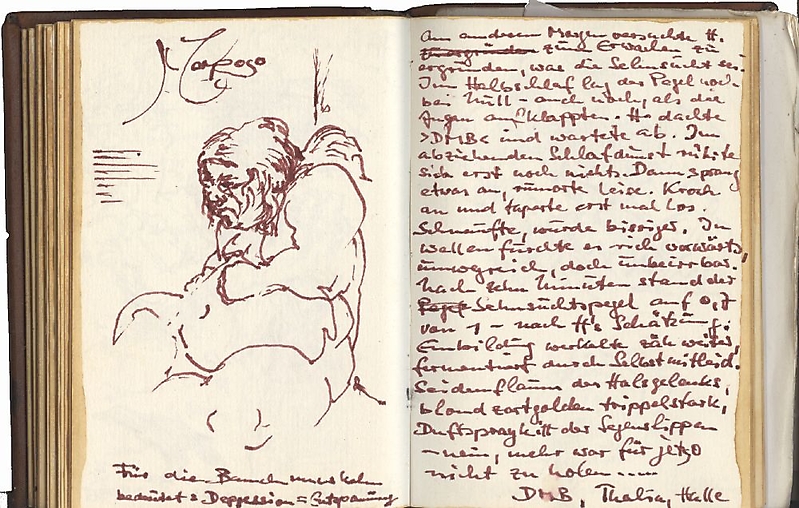 Für die Bauchmuskeln
bedeutet Depression = Entspannung
Am anderen Morgen versuchte H.
zum Erwachen zu
ergründen, was die Sehnsucht sei.
Im Halbschlaf lag der Pegel noch
bei Null – auch noch, als die
Augen aufklappten. H. dachte
>DMB< und wartete ab. Im
abziehenden Schlafdunst rührte
sich erst noch nichts. Dann sprang
etwas an, rumorte leise. Kroch
an und taperte erst mal los.
Schnaufte, wurde bissiger. In
Wellen furchte es sich vorwärts,
doch unbeirrbar.
Nach zehn Minuten stand der
Sehnsuchtspegel auf 0,7
von 1 – nach H's Schätzung.
Einbildung werkelte zäh weiter,
fermentiert durch Selbstmitleid.
Seidenflaum des Halsgelenks,
blond zartgolden
der Segenslippen
– nein, mehr war für jetzo
nicht zu holen.....
DMB, Thalia, Halle